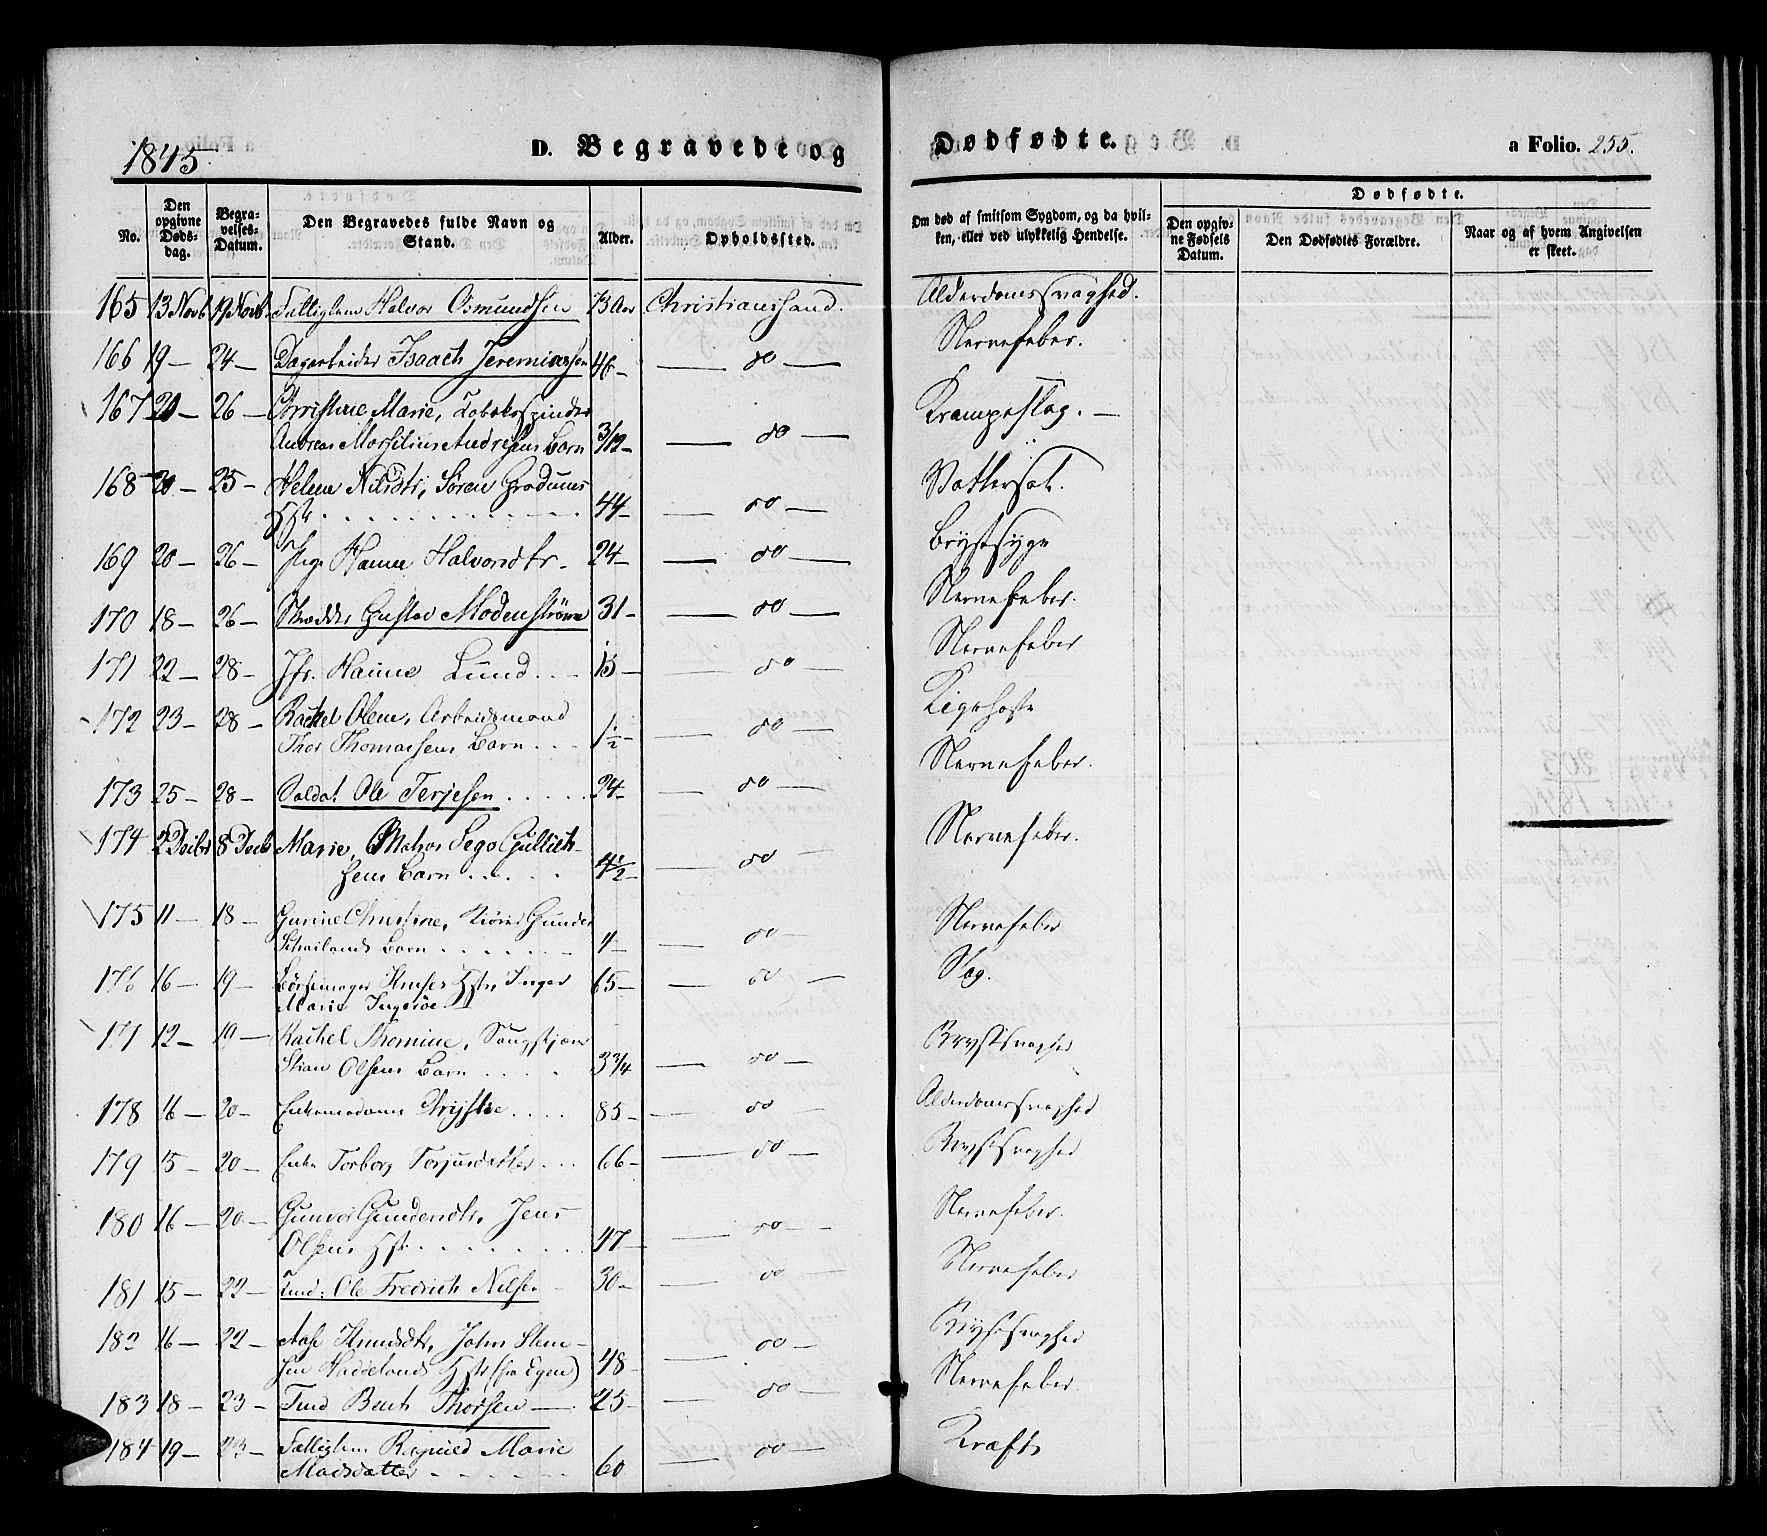 1845.
D. Begravede og Dødfødte.
a Folio. 255.
No.
Den opgivne Døds-dag.
Begra-velses-Datum.
Den Begravedes fulde Navn og Stand.
Alder.
Opholdssted.
Om død af smitsom Sygdom, og da hvil-ken, eller ved ulykkelig Hendelse.
Dødfødte.
Den opgiv-ne Fødsels Datum.
Den Dødfødtes Forældre.
Naar og af hvem Angivelsen er skeet.
165 13 Novb 19 Novb. Fattiglem Halvor Osmundsen 73 Aar Christianssand. Alderdomssvaghed.
166 19 — 24 — Dagarbeider Isaach Jeremiassen 46 — do — Nervefeber.
167 20 — 26 — Christine Marie, Tobakspinder
Andreas Andresens Barn 3/12 — do — Krampeslag. —
168 20 — 25 — Helene Nilsdtr, Søren
Hstr 44 — do — Vattersot.
169 20 — 26 — Pige Hanne Halvorsdtr. 24 — do — Brystsyge
170 18 — 26 — Skrædder Gustav Modenstrøm 31 — do — Nervefeber.
171 22 — 28 — Jfr. Hanne Lund 15 — do — Nervefeber
172 23 — 28 — Rachel Olene, Arbeidsmand
Thor Thomassens Barn 1 1/2 — do — Kighoste
173 25 — 28 — Soldat Ole Terjesen 24 — do — Nervefeber.
174 2 Decbr 8 Decb Marie, Matros Gullich-
sens Barn 4 1/2 — do — Nervefeber.
175 11 — 18 — Gurine Christine, Gunder
Barn 4 — do — Nervefeber
176 16 — 19 — Hstr, Inger
Marie 65 — do — Slag.
177 12 — 19 — Rachel Thomine,
Stian Olsens Barn 3 3/4 — do — Brystsvaghed
178 16 — 20 — Enkemadame 85 — do — Alderdomssvaghed
179 15 — 20 — Enke Torborg Torjusdatter 66 — do — Brystsvaghed
180 16 — 20 — Gunvor Gundersdtr. Jens
Olsens Hstr. 47 — do — Nervefeber.
181 15 — 22 — Tind: Ole Fredrich Nilsen 30 — do — Nervefeber
182 16 — 22 — Aase Knudsdtr, John Sten-
sen Hstr (fra Egen) 48 — do — Brystsvaghed
183 18 — 23 — Tind Bent Thorsen 25 — do — Nervefeber.
184 19 — 23 — Fattiglem Ragnild Marie
Madsdatter 60 — do — Kræft